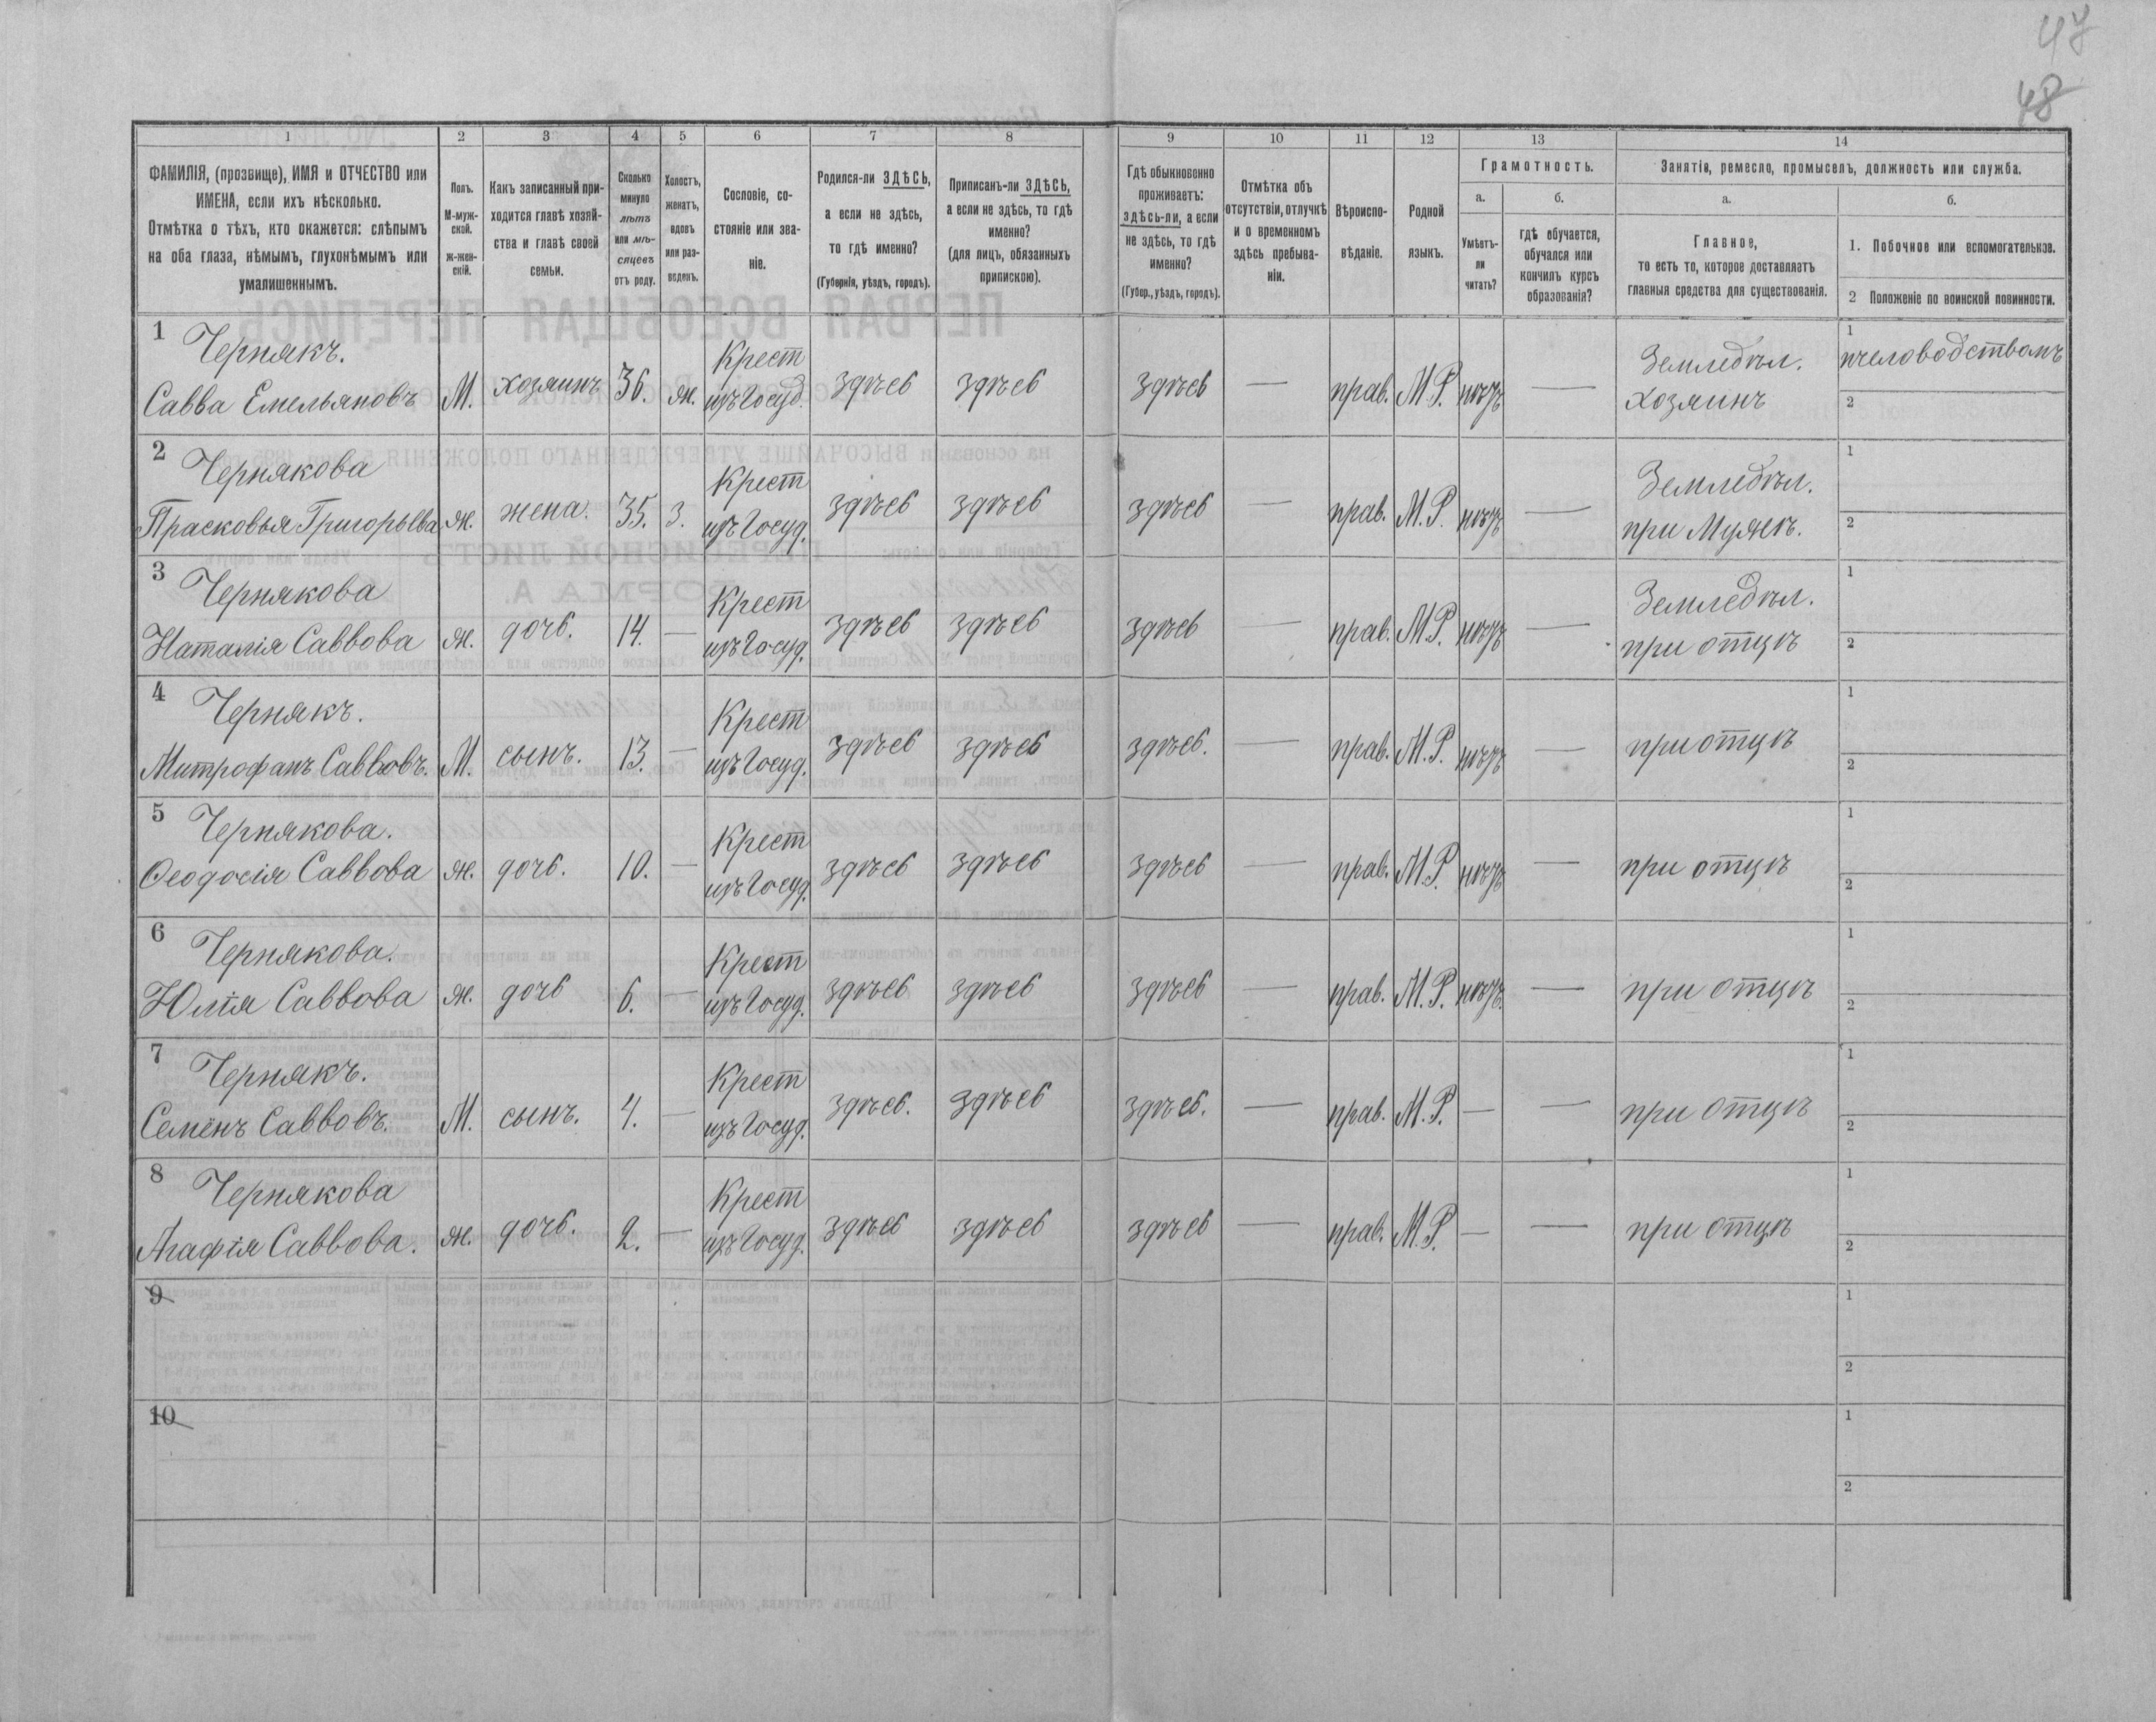 47
48
1 2 3 4 5 6 7 8 9 10 11 12 13 14
ФАМИЛІЯ, (прозвище), ИМЯ и ОТЧЕСТВО или
ИМЕНА, если ихъ нѣсколько.
Отмѣтка о тѣхъ, кто окажется: слѣпымъ
на оба глаза, нѣмымъ, глухонѣмымъ или
умалишеннымъ.
Полъ.
М-муж-
ской.
ж-жен-
скій.
Какъ записанный при-
ходится главѣ хозяй-
ства и главѣ своей
семьи.
Сколько
минуло
лѣтъ
или мѣ-
сяцевъ
отъ роду.
Холостъ,
женатъ,
вдовъ
или раз-
веденъ.
Сословіе, со-
стояніе или зва-
ніе.
Родился-ли ЗДѢСЬ,
а если не здѣсь,
то гдѣ именно?
(Губернія, уѣздъ, городъ).
Приписанъ-ли ЗДѢСЬ,
а если не здѣсь, то гдѣ
именно?
(для лицъ, обязанныхъ
припискою).
Гдѣ обыкновенно
проживаетъ:
здѣсь-ли, а если
не здѣсь, то гдѣ
именно?
(Губер., уѣздъ, городъ).
Отмѣтка объ
отсутствіи, отлучкѣ
и о временномъ
здѣсь пребыва-
ніи.
Вѣроиспо-
вѣданіе.
Родной
языкъ.
Грамотность.
а.
Умѣетъ-
ли
читать?
б.
гдѣ обучается,
обучался или
кончилъ курсъ
образованія?
Занятія, ремесло, промыселъ, должность или служба.
а.
Главное,
то есть то, которое доставляетъ
главныя средства для существованія.
б.
1. Побочное или вспомогательное.
2 Положеніе по воинской повинности.
1 Чернякъ. Крест Земледѣл. 1 пчеловодствомъ
Савва Емельяновъ М. хозяинъ 36. ж. изъ Госуд. здѣсь здѣсь здѣсь — прав. М.Р. нѣтъ — хозяинъ 2
2 Чернякова Крест Земледѣл. 1
Прасковья Григорьева ж. жена. 35. З. изъ Госуд. здѣсь здѣсь здѣсь — прав. М.Р. нѣтъ — при Мужѣ. 2
3 Чернякова Крест Земледѣл. 1
Наталія Саввова ж. дочь. 14. — изъ Госуд. здѣсь здѣсь здѣсь — прав. М.Р. нѣтъ — при отцѣ 2
4 Чернякъ. Крест 1
Митрофанъ Саввовъ. М. сынъ. 13. — изъ Госуд. здѣсь здѣсь здѣсь. — прав. М.Р. нѣтъ — при отцѣ 2
5 Чернякова. Крест 1
Ѳеодосія Саввова ж. дочь. 10. — изъ Госуд. здѣсь здѣсь здѣсь — прав. М.Р. нѣтъ — при отцѣ 2
6 Чернякова. Крест 1
Юлія Саввова ж. дочь 6. — изъ Госуд. здѣсь здѣсь здѣсь — прав. М.Р. нѣтъ. — при отцѣ 2
7 Чернякъ. Крест 1
Семёнъ Саввовъ. М. сынъ. 4. — изъ Госуд. здѣсь. здѣсь здѣсь. — прав. М.Р. — — при отцѣ 2
8 Чернякова Крест 1
Агафія Саввова. ж. дочь. 2. — изъ Госуд. здѣсь здѣсь здѣсь — прав. М.Р. — — при отцѣ 2
9 1
2
10 1
2